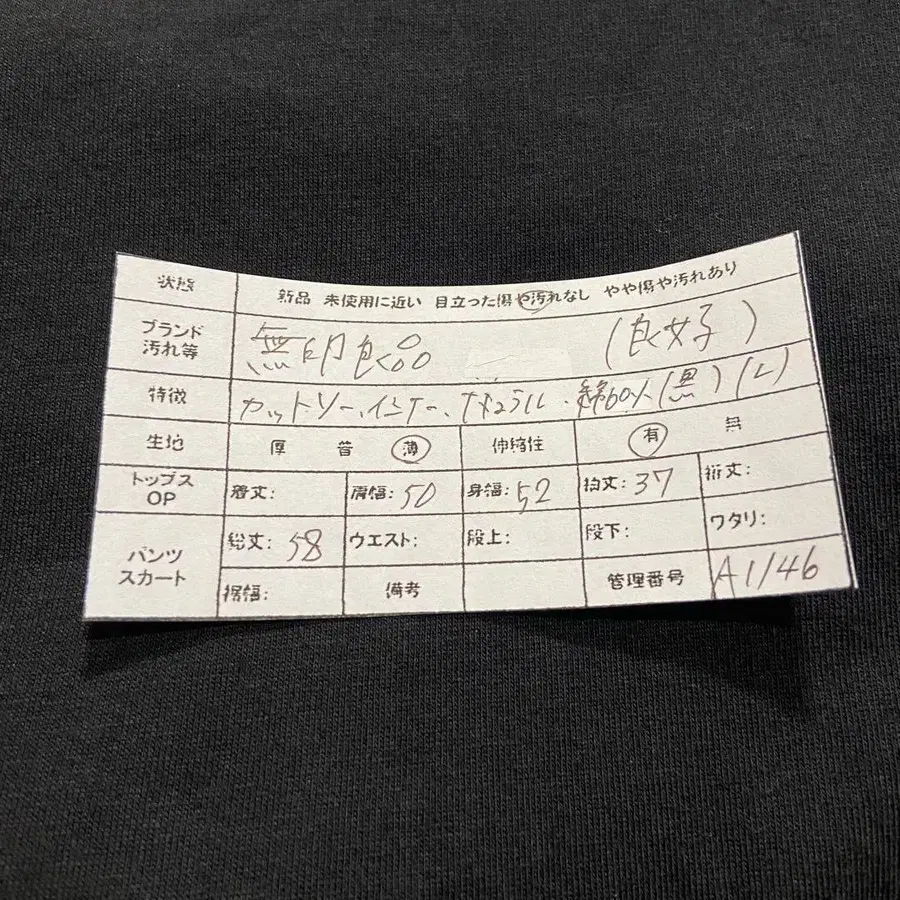 状態 新品 未使用に近い 目立った傷や汚れなし やや傷や汚れあり
ブランド 汚れ等 無印良品 (良女子)
特徴 カットソー、インナー、ナチュラル・綿 (黒) (L)
生地 厚 普 薄 伸縮性 有 無
トップス OP 着丈: 肩幅: 50 身幅: 52 裄丈: 37 裄丈:
パンツ スカート 総丈: 58 ウエスト: 股上: 股下: ワタリ:
裾幅: 備考 管理番号 A1146